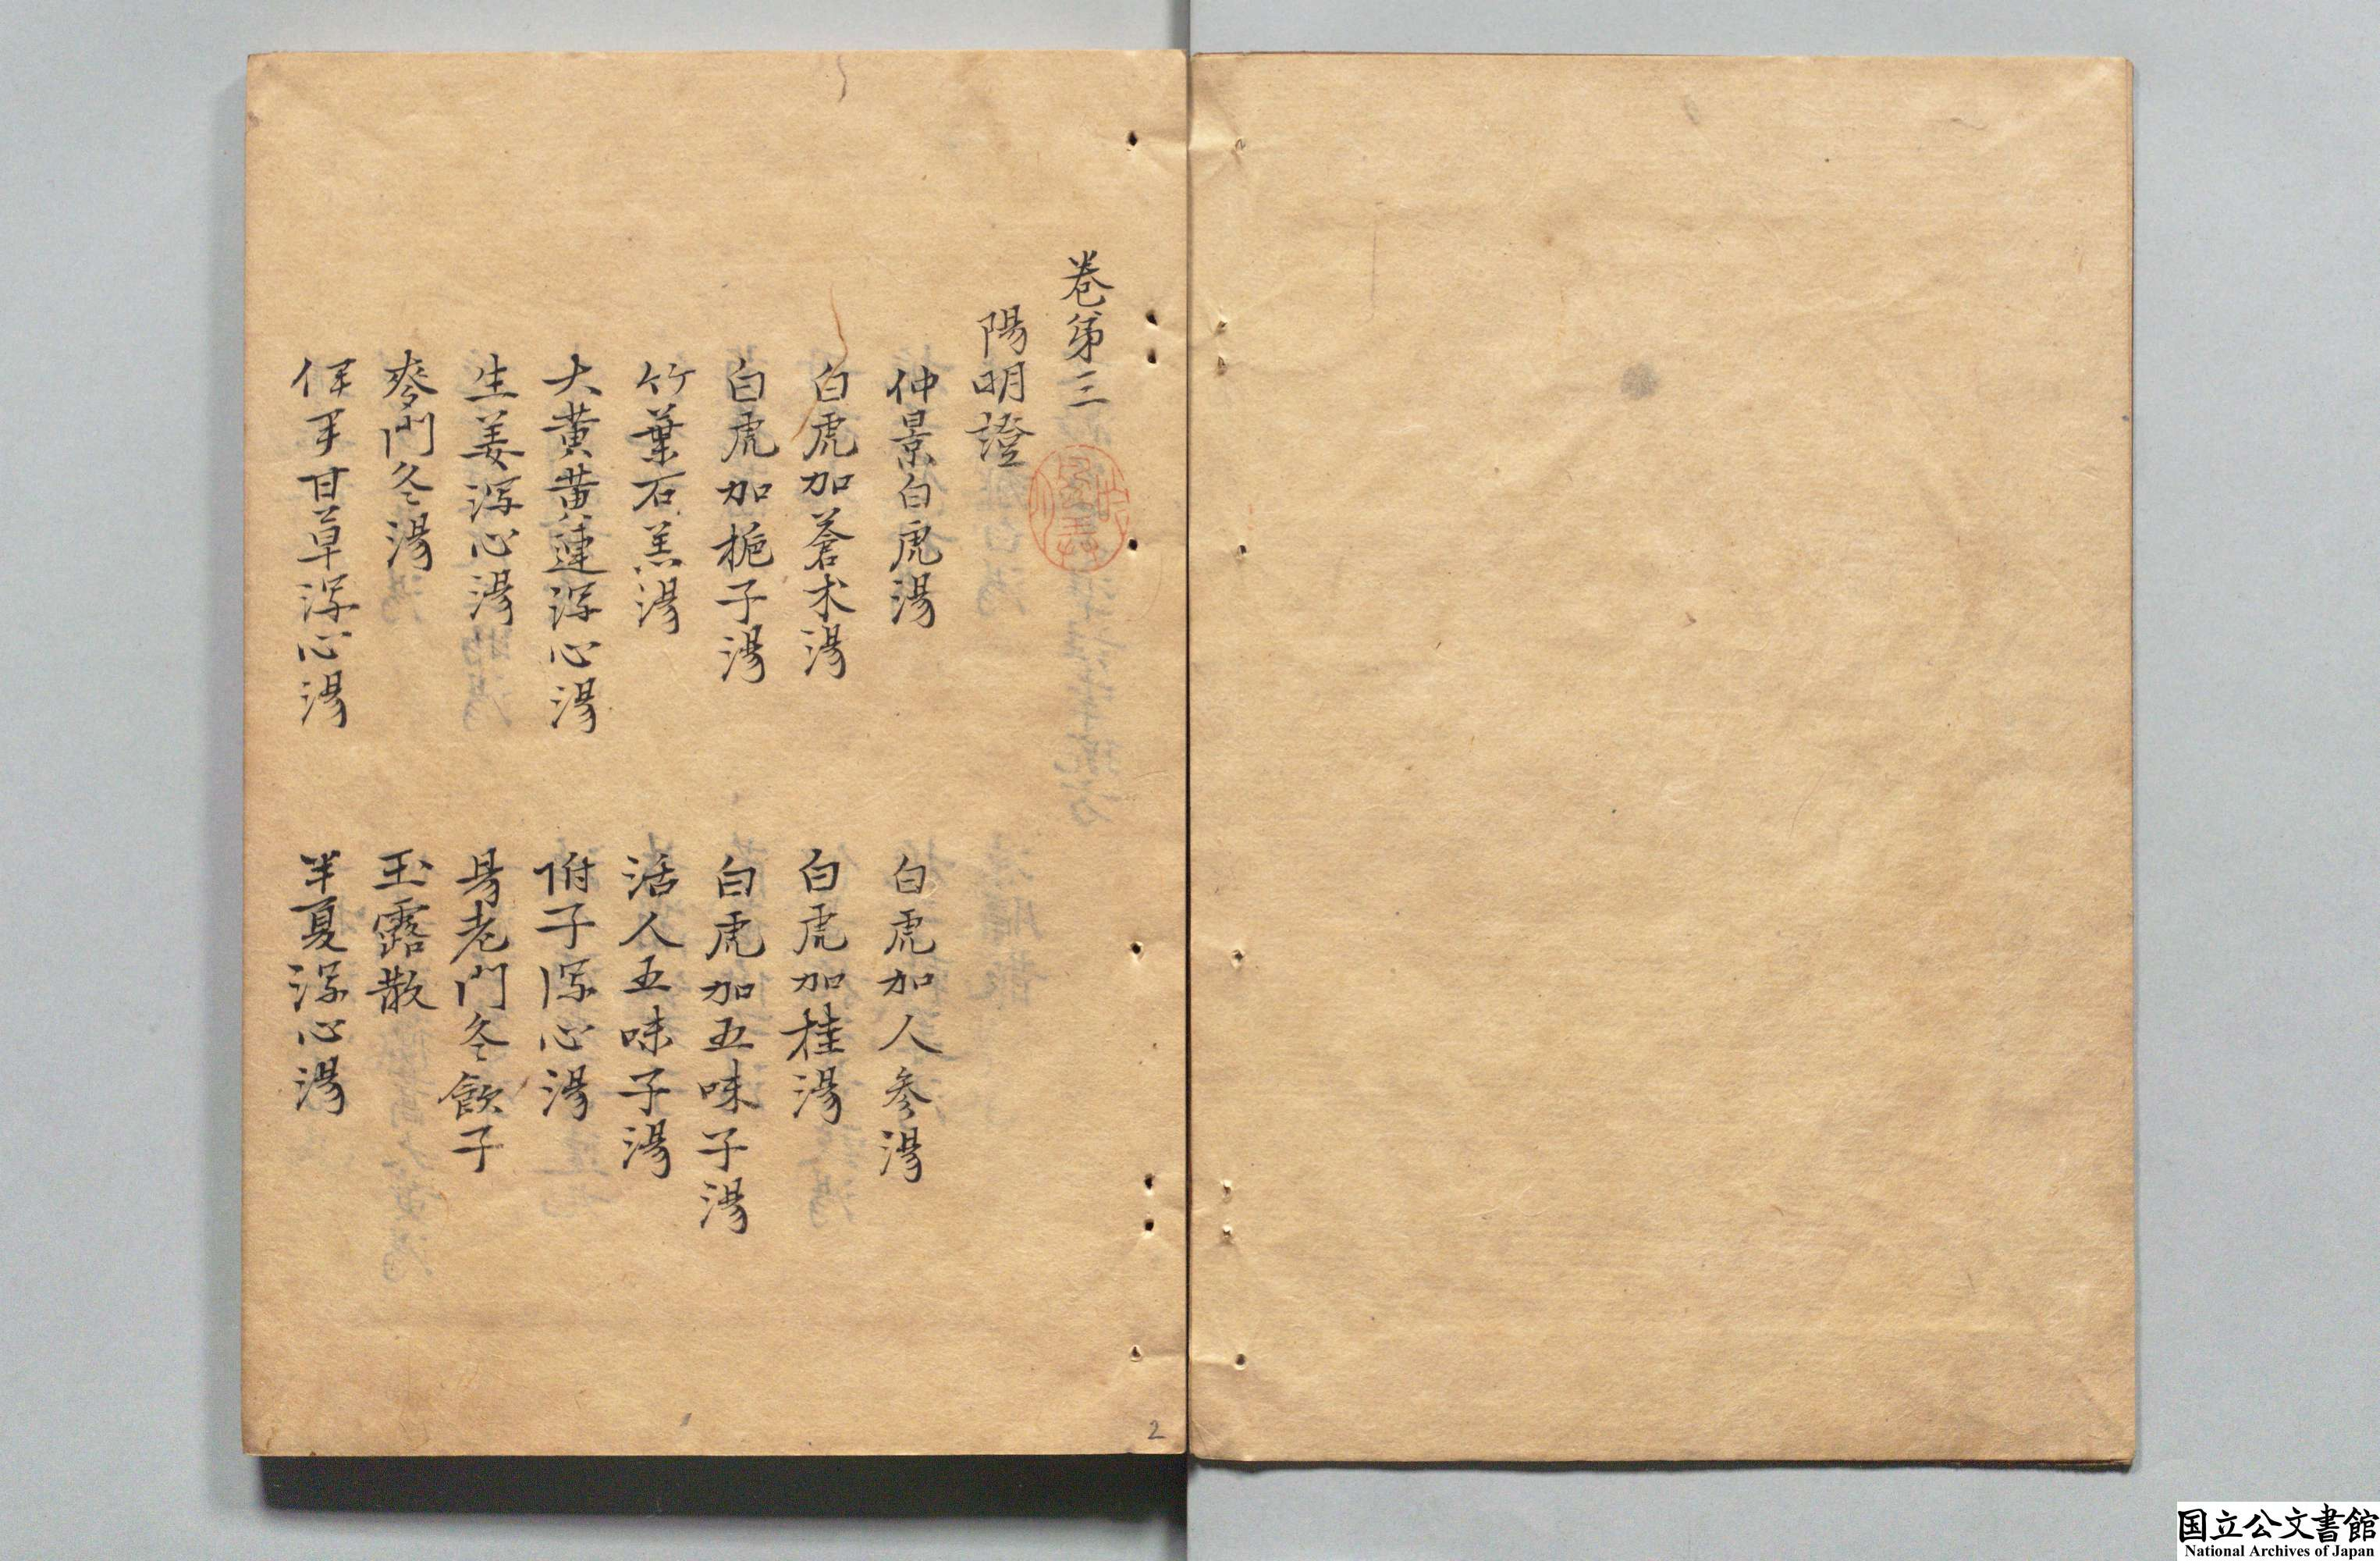 卷第三
陽明證
仲景白虎湯　白虎加人参湯
白虎加蒼术湯　白虎加桂湯
白虎加梔子湯　白虎加五味子湯
竹葉石羔湯　活人五味子湯
大黄黄連泻心湯　附子泻心湯
生姜泻心湯　易老門冬飲子
麥門冬湯　玉露散
伊尹甘草泻心湯　半夏泻心湯
2
国立公文書館
National Archives of Japan